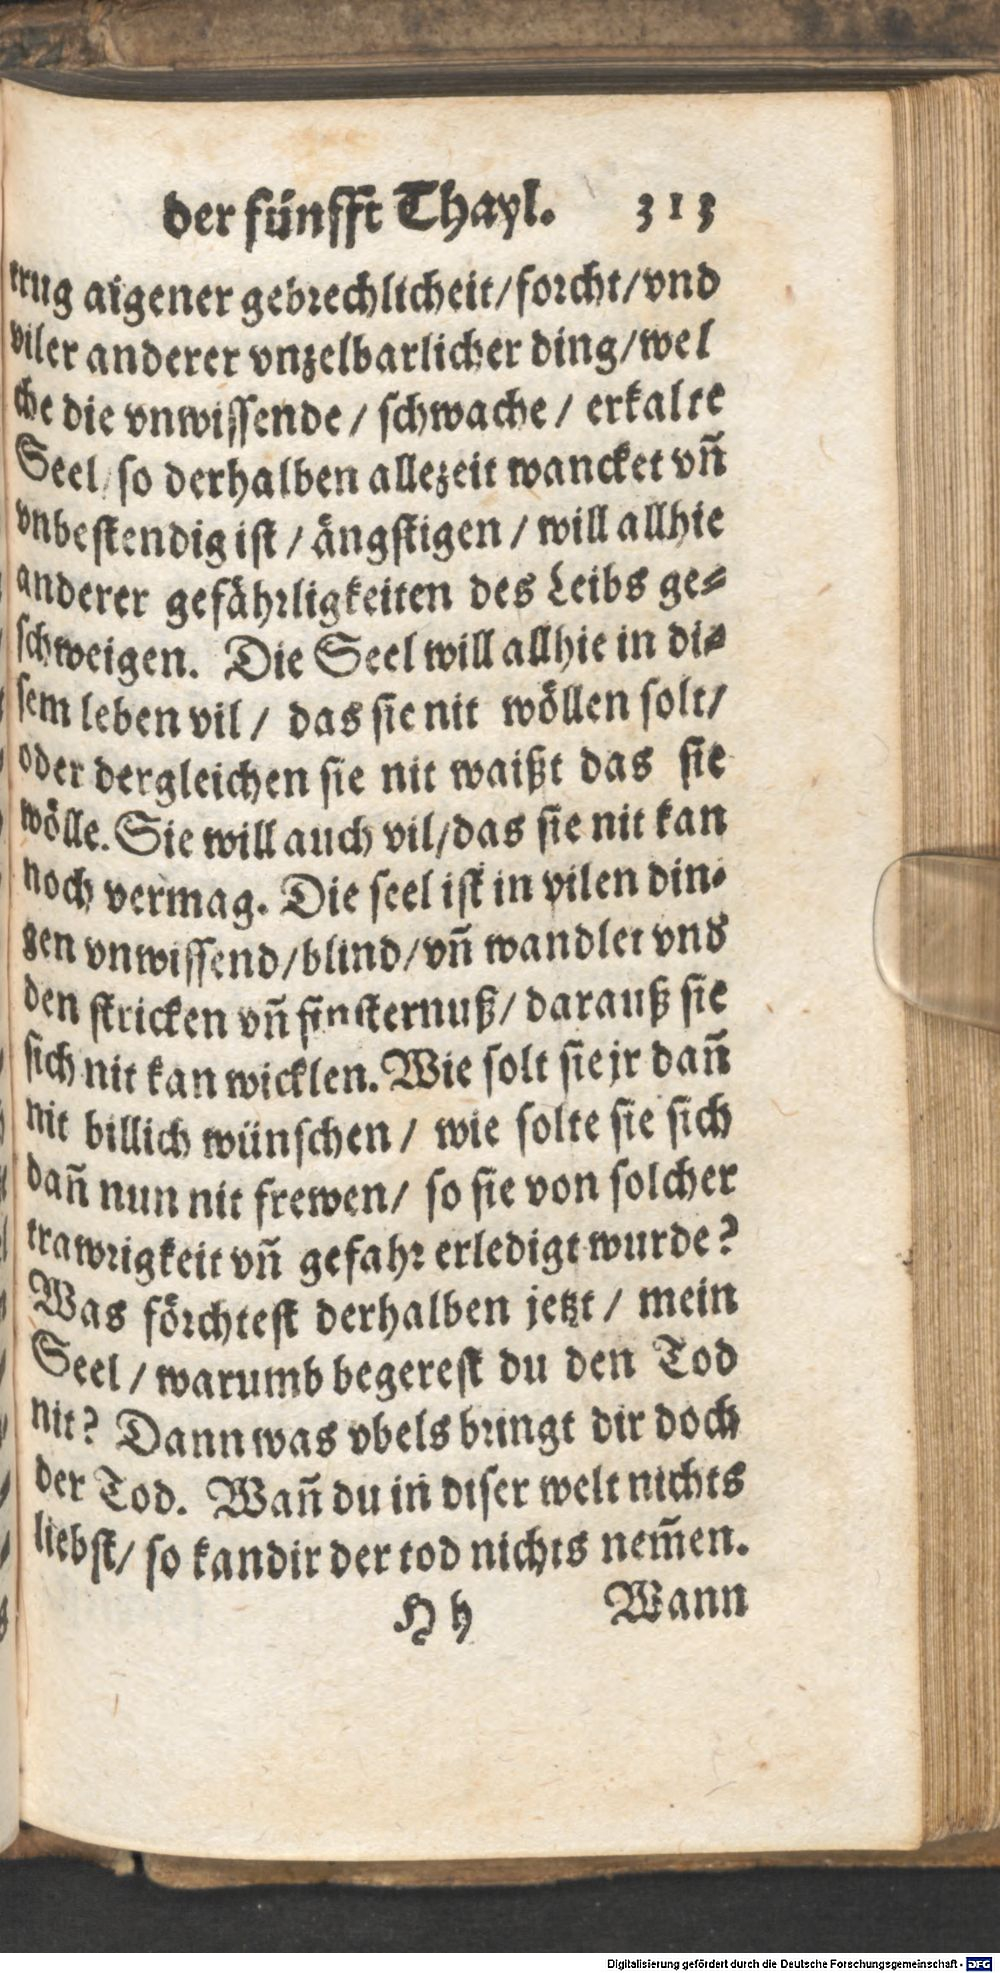 der fünfft Thayl. 313
trug aigener gebrechlicheit/forcht/vnd
viler anderer vnzelbarlicher ding/wel
che die vnwissende/ schwache/ erkalte
Seel/so derhalben allezeit wancket vñ
vnbestendig ist/ ängstigen/ will allhie
anderer gefährligkeiten des Leibs ge-
schweigen. Die Seel will allhie in di-
sem leben vil/ das sie nit wöllen solt/
oder dergleichen sie nit waißt das sie
wölle. Sie will auch vil/das sie nit kan
noch vermag. Die seel ist in vilen din-
gen vnwissend/blind/vñ wandlet vnd
den stricken vñ finsternuß/ darauß sie
sich nit kan wicklen. Wie solt sie jr dañ
nit billich wünschen/ wie solte sie sich
dañ nun nit frewen/ so sie von solcher
trawrigkeit vñ gefahr erledigt wurde?
Was förchtest derhalben jetzt/ mein
Seel/ warumb begerest du den Tod
nit? Dann was vbels bringt dir doch
der Tod. Wañ du in diser welt nichts
liebst/ so kan dir der tod nichts nem̃en.
Hh Wann
Digitalisierung gefördert durch die Deutsche Forschungsgemeinschaft - DFG